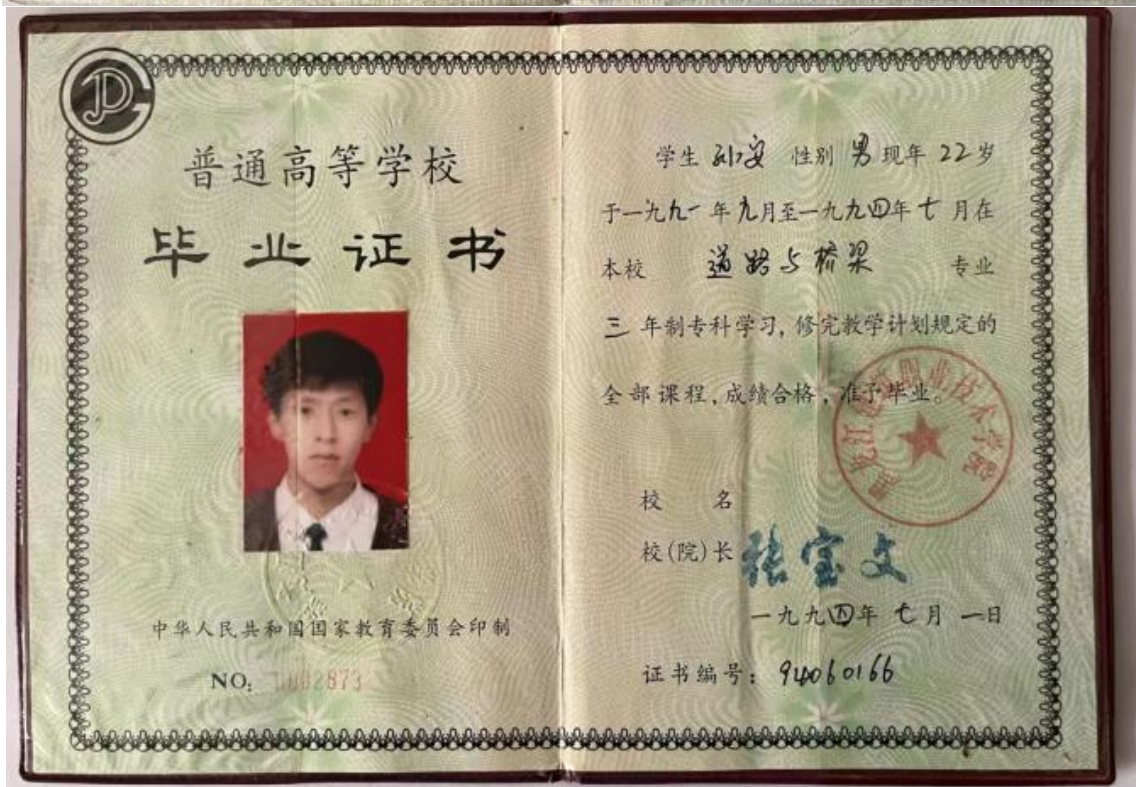 普通高等学校
毕业证书
中华人民共和国国家教育委员会印制
NO: 2873
学生 孙 性别 男 现年 22 岁
于一九九一年九月至一九九四年七月在
本校 道路与桥梁 专业
三 年制专科学习, 修完教学计划规定的
全部课程, 成绩合格, 准予毕业。
黑龙江 职业技术学院
校 名
校(院)长 张宝文
一九九四年七月一日
证书编号: 94060166